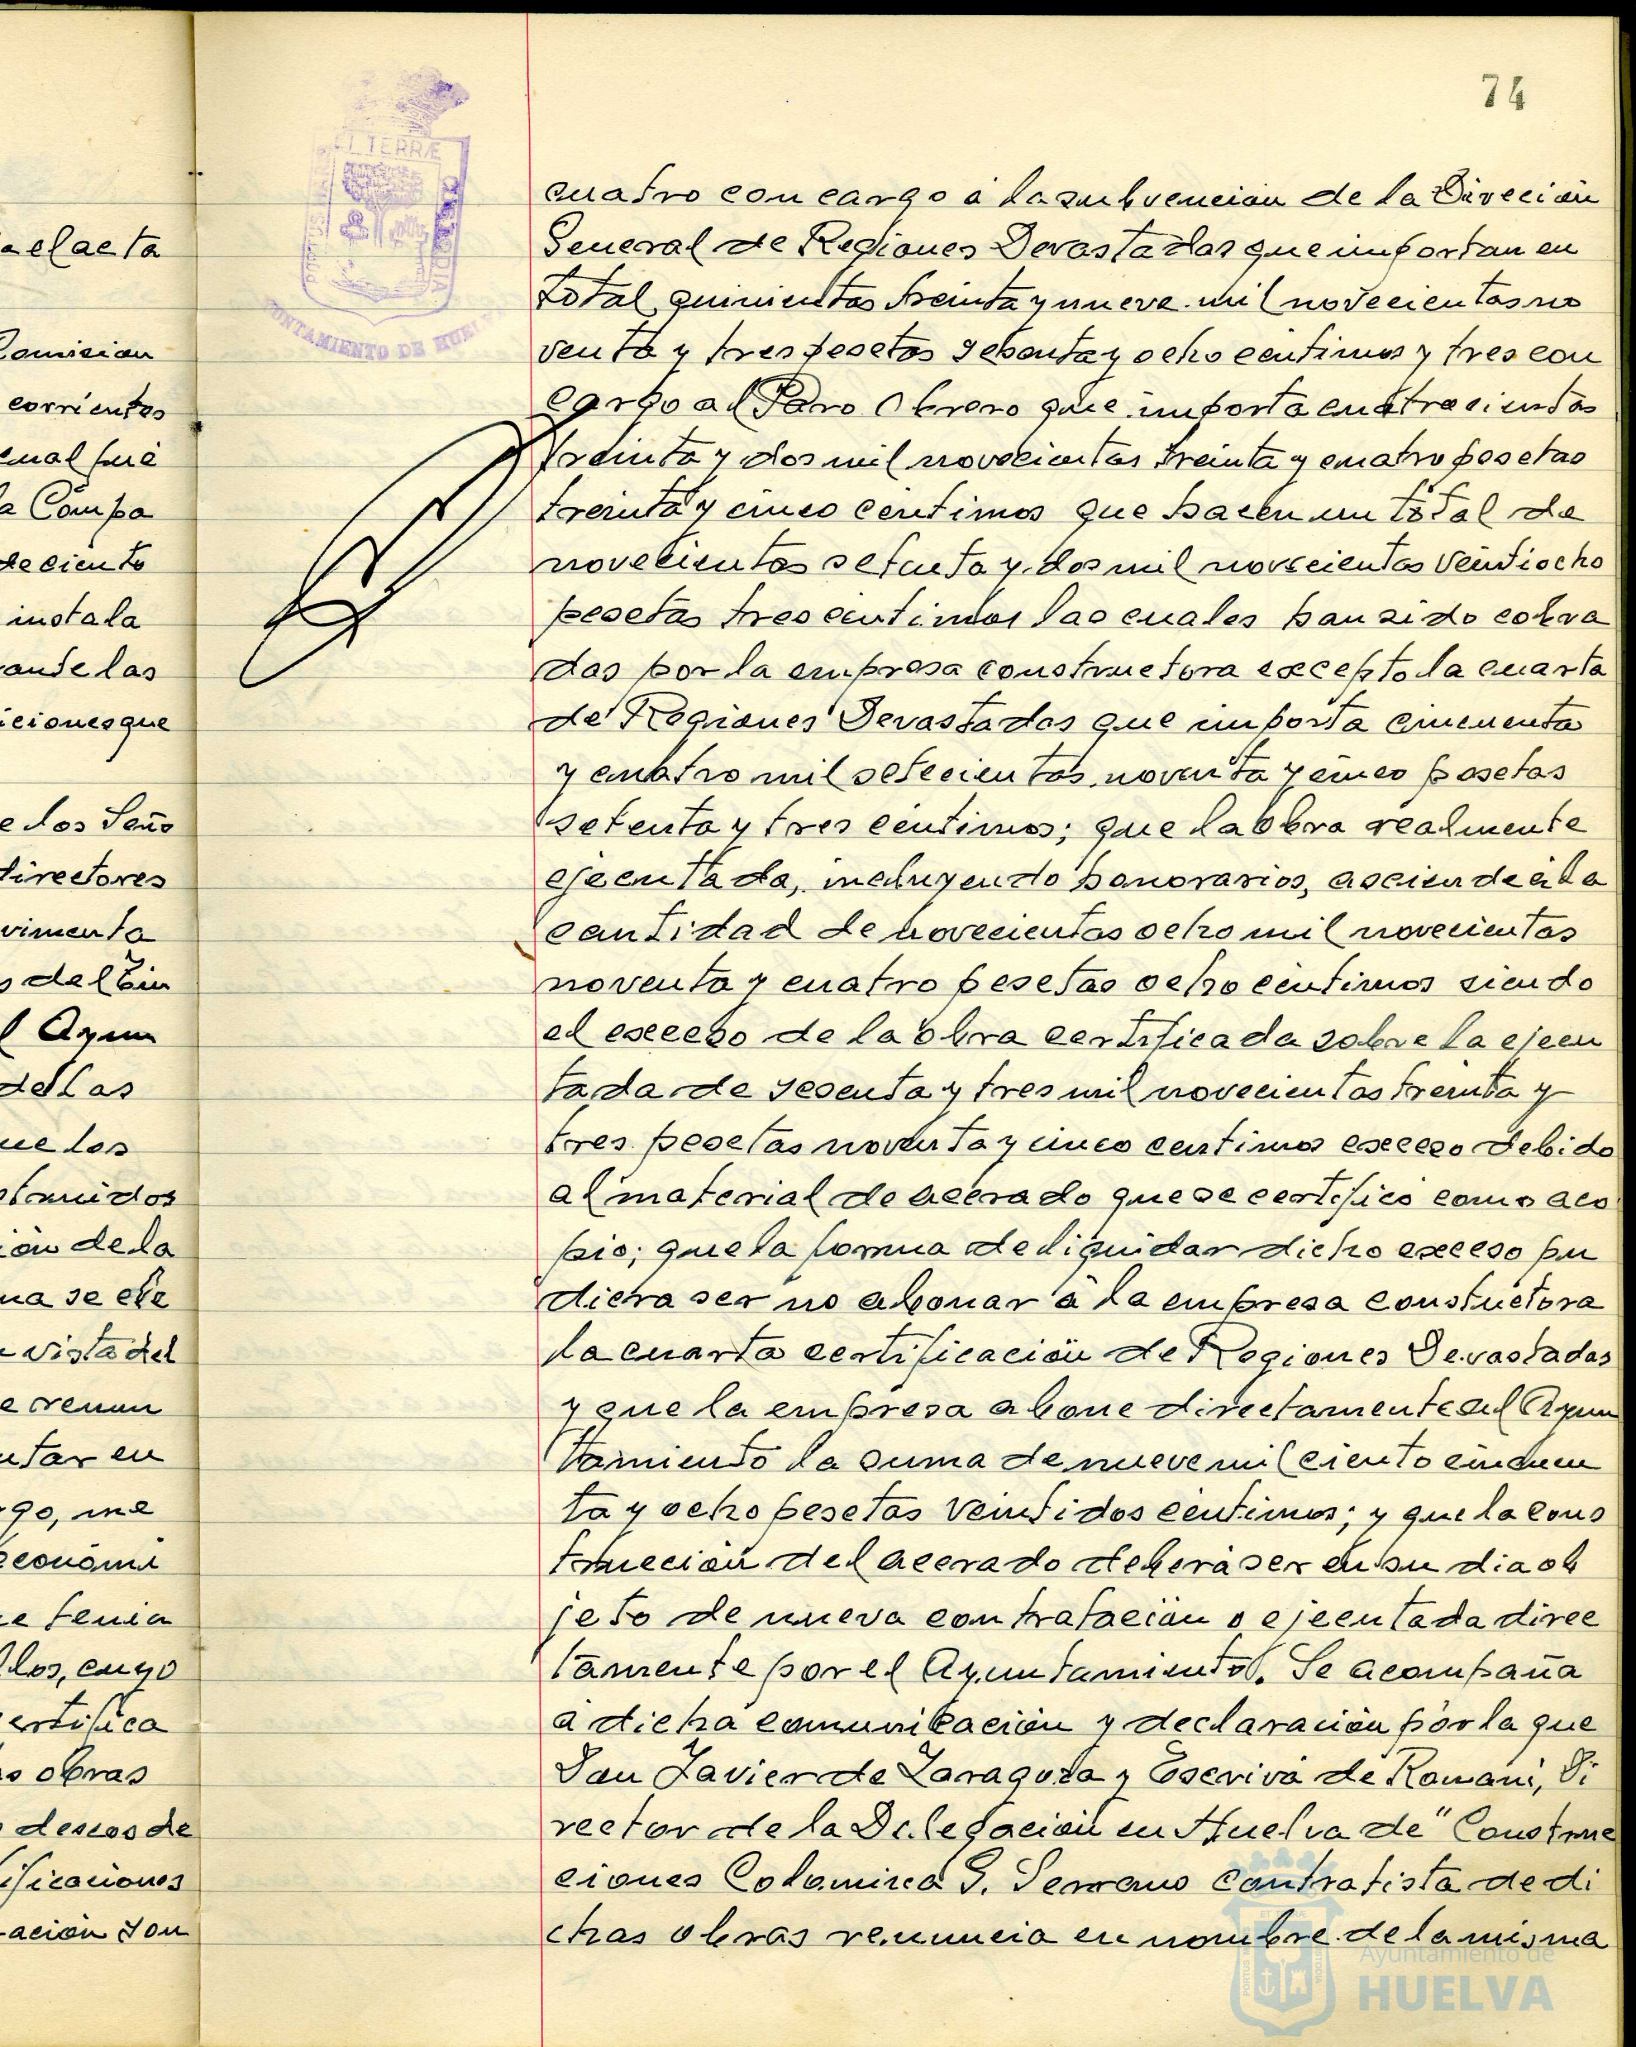 74
cuatro con cargo á la subvencion de la Direcion
General de Regiones Devastadas que importan en
total quinientas treinta y nueve mil novecientas no
venta y tres pesetas sesenta y ocho centimos y tres con
cargo al Paro Obrero que importa cuatrocientas
treinta y dos mil novecientas treinta y cuatro pesetas
treinta y cinco centimos que hacen un total de
novecientas setenta y dos mil novecientas veintiocho
pesetas tres centimos las cuales han sido cobra
das por la empresa constructora excepto la cuarta
de Regiones Devastadas que importa cincuenta
y cuatro mil setecientas noventa y cinco pesetas
setenta y tres centimos; que la obra realmente
ejecutada, incluyendo honorarios, asciende á la
cantidad de novecientas ocho mil novecientas
noventa y cuatro pesetas ocho centimos siendo
el exceso de la obra certificada sobre la ejecu
tada de sesenta y tres mil novecientas treinta y
tres pesetas noventa y cinco centimos exceso debido
al material de acerado que se certificó como aco
pio; que la forma de liquidar dicho exceso pu
diera ser no abonar á la empresa constuctora
la cuarta certificación de Regiones Devastadas
y que la empresa abone directamente al Ayun
tamiento la suma de nueve mil ciento cincuen
ta y ocho pesetas veintidos centimos; y que la cons
trucción del acerado deberá ser en su dia ob
jeto de nueva contratación o ejecutada direc
tamente por el Ayuntamiento. Se acompaña
á dicha comunicación y declaración por la que
Don Javier de Zaragoza y Escrivá de Romaní, Di
rector de la Delegación en Huelva de "Construc
ciones Colomina G. Serrano contratista de di
chas obras renuncia en nombre de la misma
a el acta
Comision
corrientes
cual fué
la Compa
de ciento
instala
ante las
iciones que
e los Seño
directores
vimento
s del
l Ayun
de las
ue los
struidos
ión de la
ma se ele
vista del
e renun
utar en
go, me
económi
e tenia
los, cuyo
ertifica
s obras
deseos de
ificaciones
ación son
TERRÆ
AYUNTAMIENTO DE HUELVA
Ayuntamiento de
HUELVA